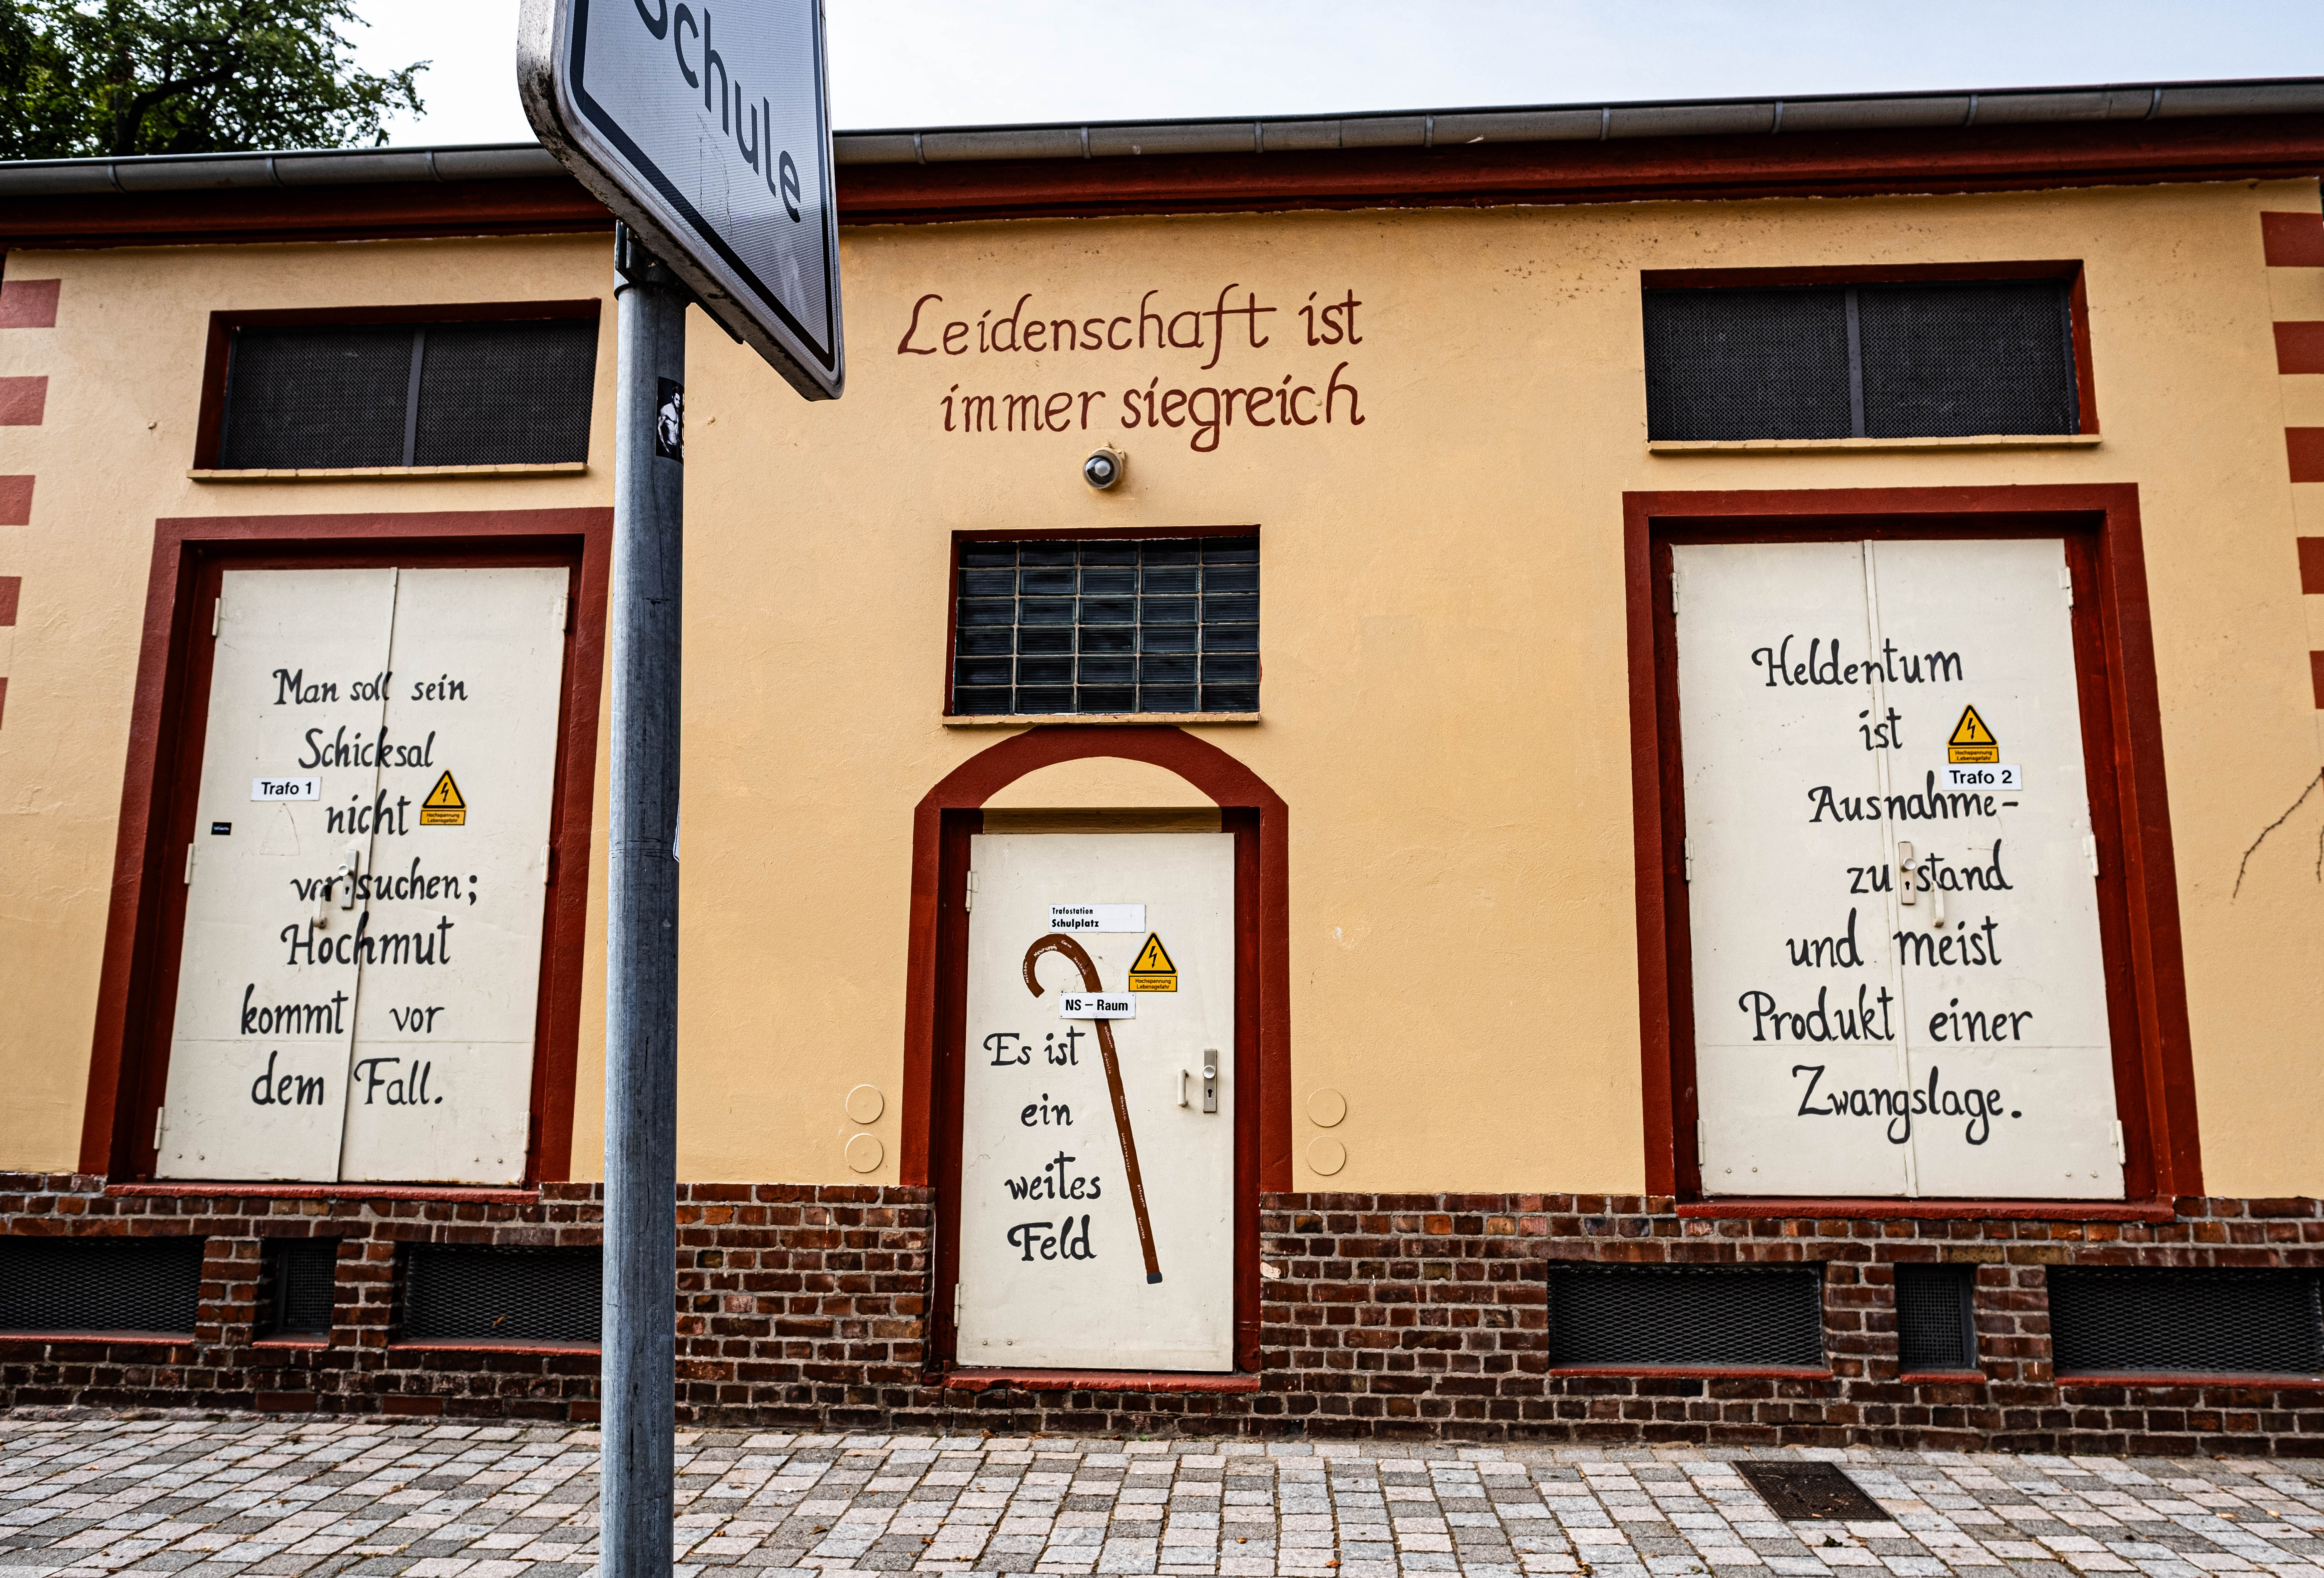 Schule
Leidenschaft ist
immer siegreich
Man soll sein
Schicksal
nicht
versuchen;
Hochmut
kommt vor
dem Fall.
Trafo 1
Hochspannung
Lebensgefahr
Trafostation
Schulplatz
Hochspannung
Lebensgefahr
NS – Raum
Es ist
ein
weites
Feld
Heldentum
ist
Ausnahme-
zustand
und meist
Produkt einer
Zwangslage.
Hochspannung
Lebensgefahr
Trafo 2